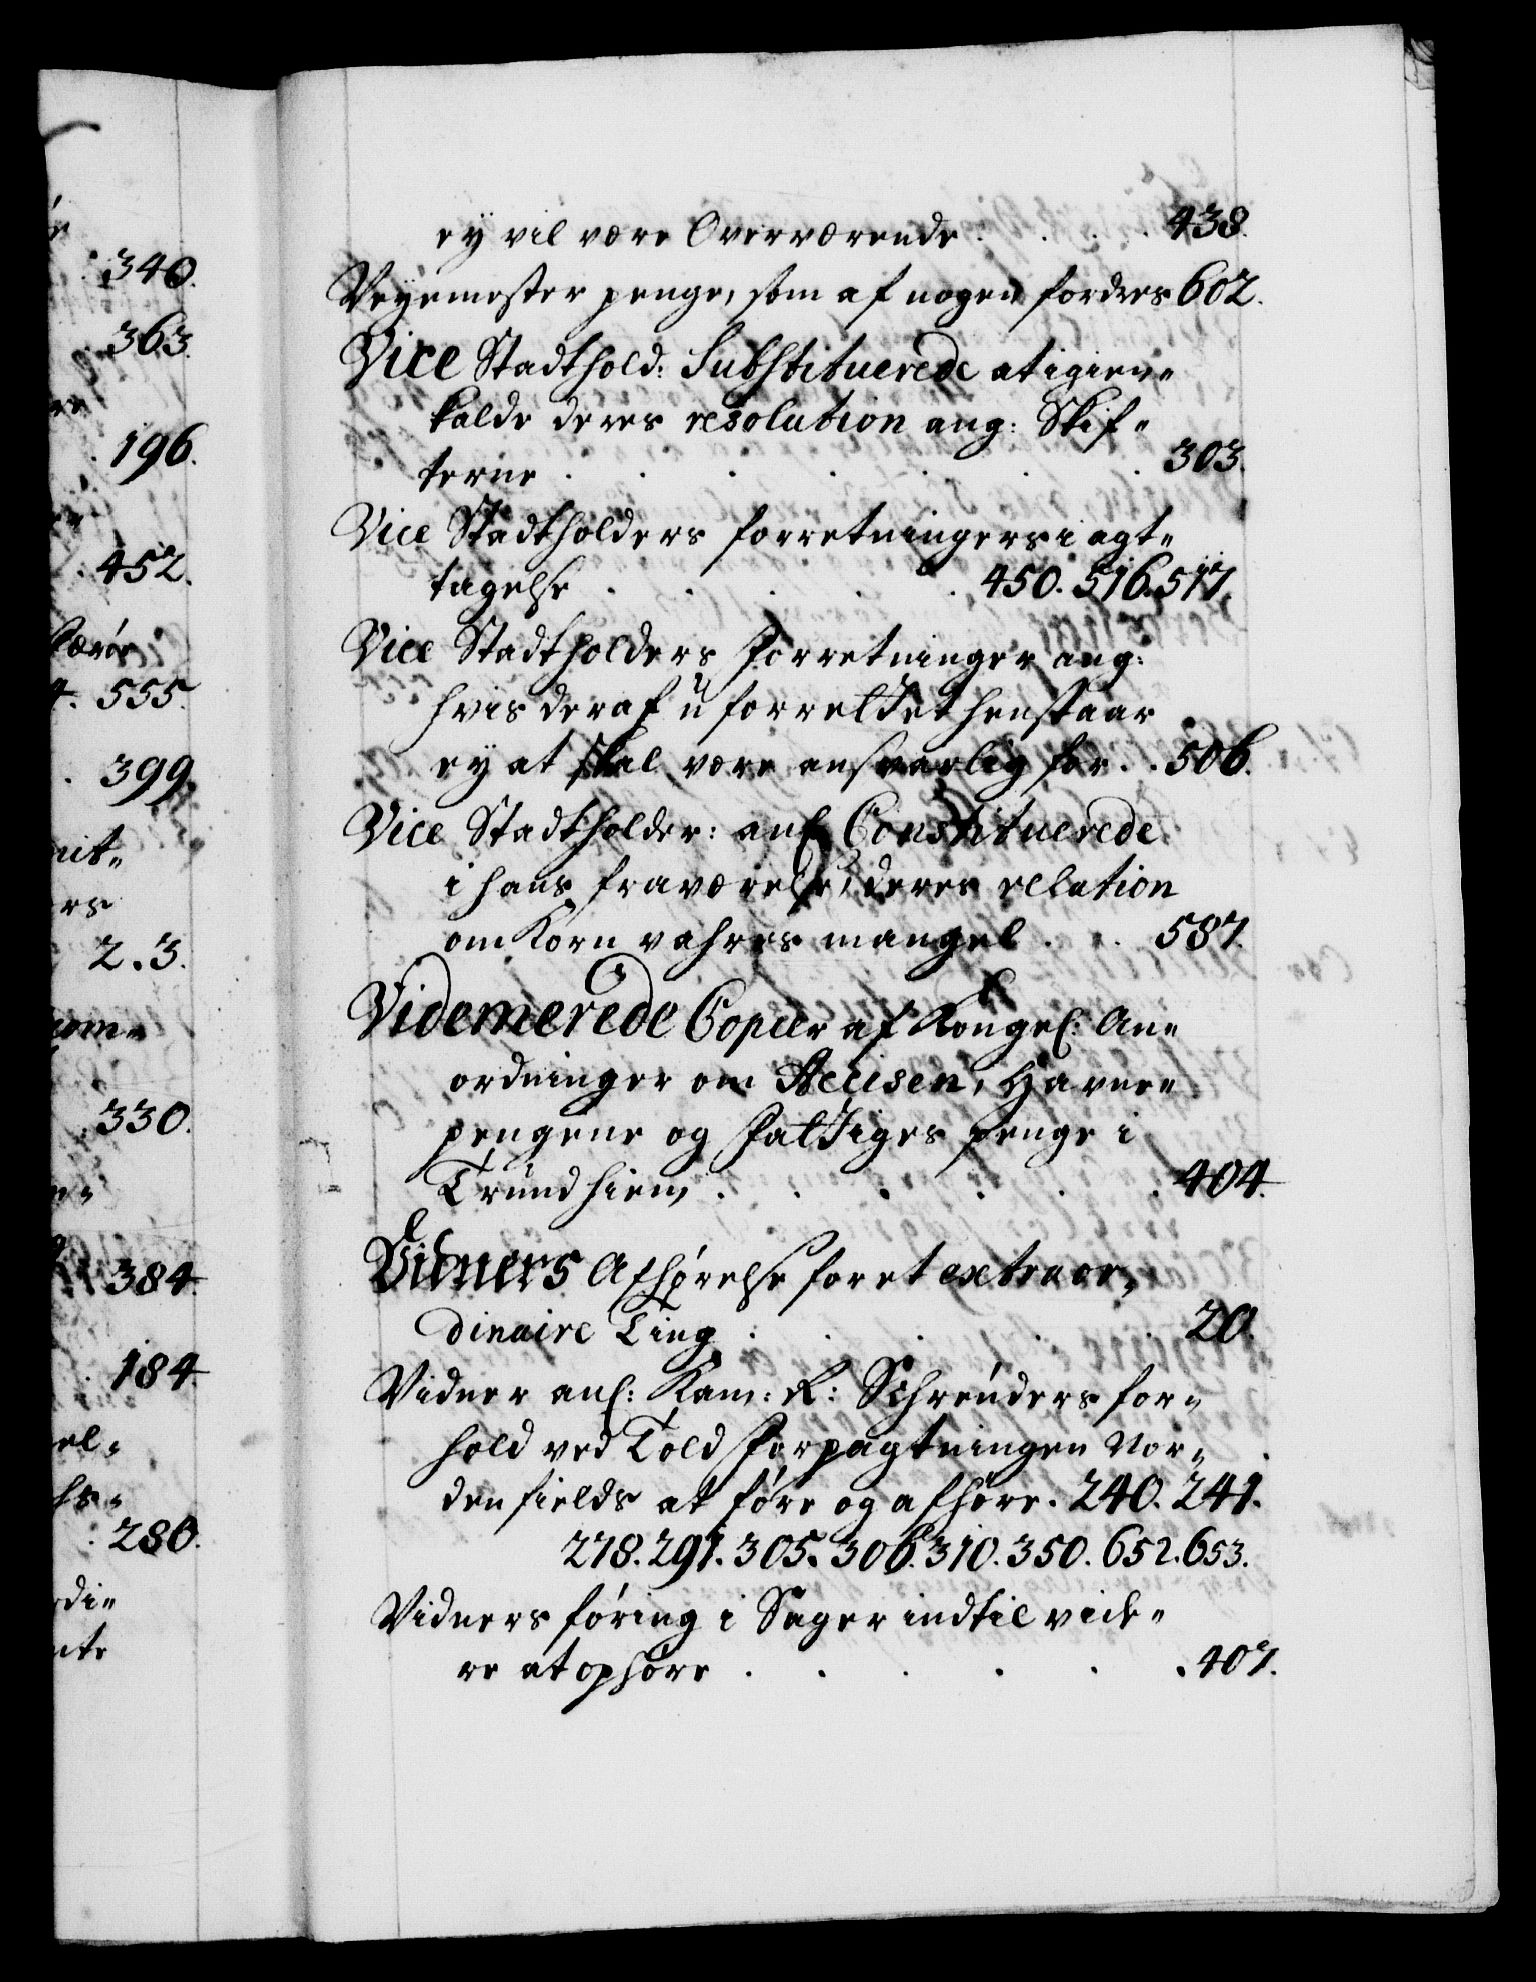 340.
363.
re
196.
452.
4. 555.
399.
nit-
ers
2.3.
330.
384.
184
el-
280.
di-
ey vil være Overværende . . . . 438.
Veyemester penge, som af nogen fordres 602.
Vice Stadthold: Substituerede at igien-
kalde deres resolution ang: Skif-
terne . . . . . . . 303.
Vice Stadtholders forretningers i agt-
tagelse . . . . . 450. 516. 517.
Vice Stadtholders Forretninger ang:
hvis deraf uforrettet henstaar
ey at skal være ansvarlig for . . 506.
Vice Stadtholder: anl: Constituerede
i hans fraværelse, deres relation
om Korn vahres mangel . . . 587.
Videmerede Copier af Kongel: An-
ordninger om Accisen, Havne-
pengene og Fattiges penge i
Trundhiem . . . . . . 404.
Vidners Afhørelse for et extraor-
dinaire Ting . . . . . 20.
Vidner anl: Kam: R: Schreuders for-
hold ved Told Forpagtningen Nor-
denfields at føre og afhøre. 240. 241.
278. 291. 305. 306. 310. 350. 652. 653.
Vidners føring i Sager indtil vide-
re at ophøre . . . . . . 407.